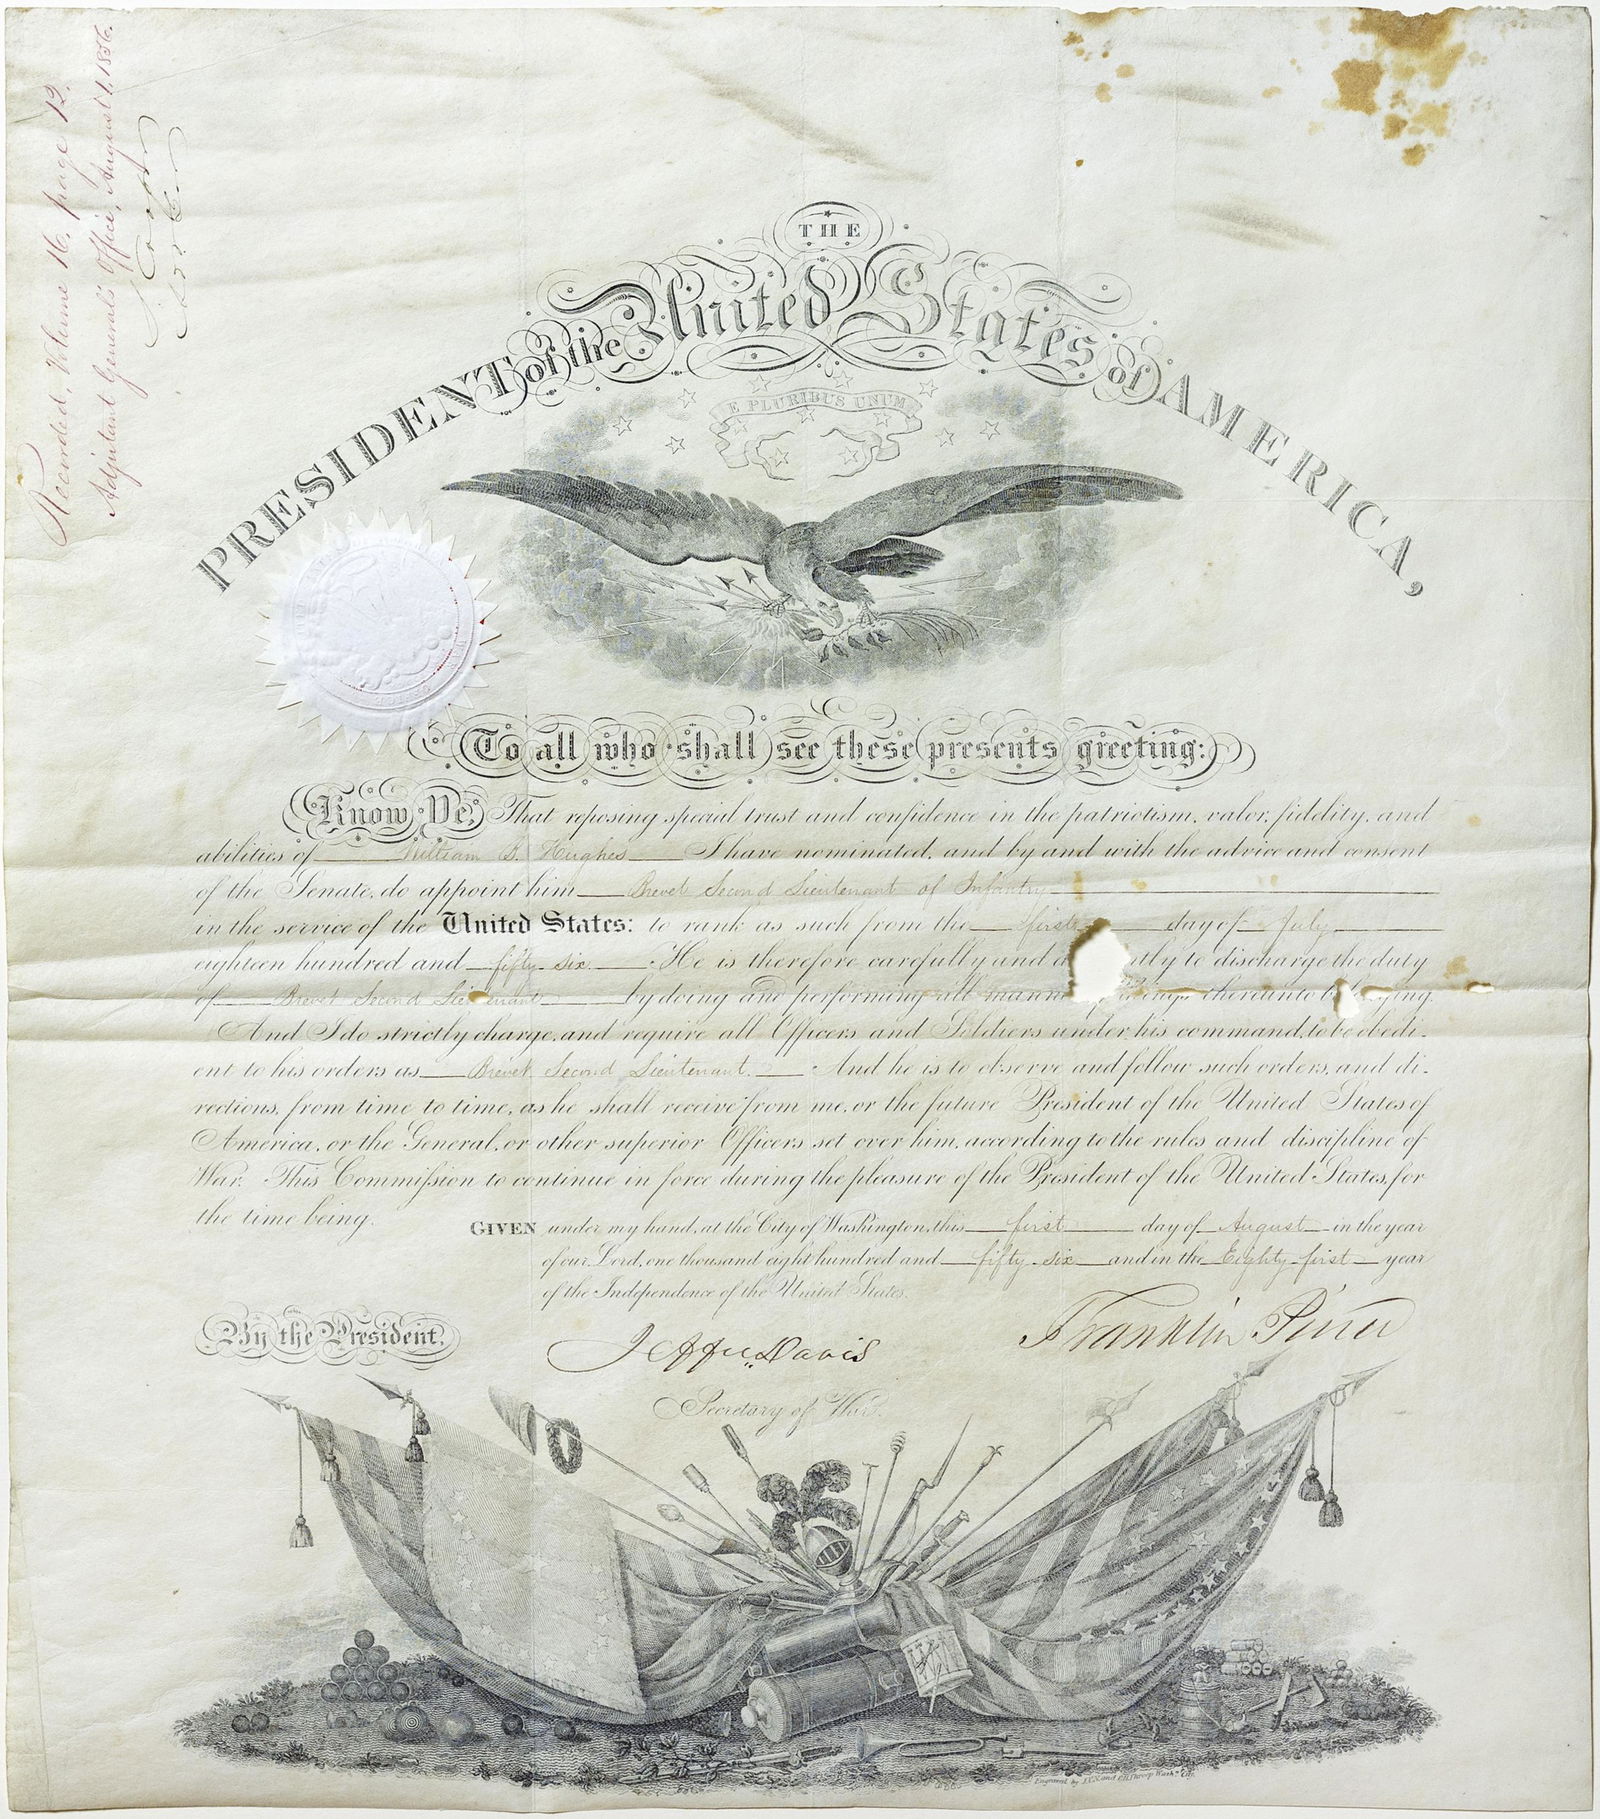 Recorded, Volume 16, page 12.
Adjutant General's Office, August 1, 1856.
THE
PRESIDENT of the United States of AMERICA,
E PLURIBUS UNUM
To all who shall see these presents greeting:
Know Ye, That reposing special trust and confidence in the patriotism, valor, fidelity, and
abilities of William B. Hughes I have nominated, and by and with the advice and consent
of the Senate, do appoint him Brevet Second Lieutenant of Infantry
in the service of the United States: to rank as such from the first day of July
eighteen hundred and fifty six. He is therefore carefully and d ntly to discharge the duty
of Brevet Second Lieutenant by doing and performing all mann things thereunto belonging.
And I do strictly charge, and require all Officers and Soldiers under his command, to be obedi-
ent to his orders as Brevet Second Lieutenant. And he is to observe and follow such orders, and di-
rections, from time to time, as he shall receive from me, or the future President of the United States of
America, or the General, or other superior Officers set over him, according to the rules and discipline of
War. This Commission to continue in force during the pleasure of the President of the United States, for
the time being.
GIVEN under my hand, at the City of Washington, this first day of August in the year
of our Lord, one thousand eight hundred and fifty six and in the Eighty first year
of the Independence of the United States.
By the President.
Jeffn. Davis
Franklin Pierce
Secretary of War.
Engraved by J.V.N. and O.H. Throop Washn. City.